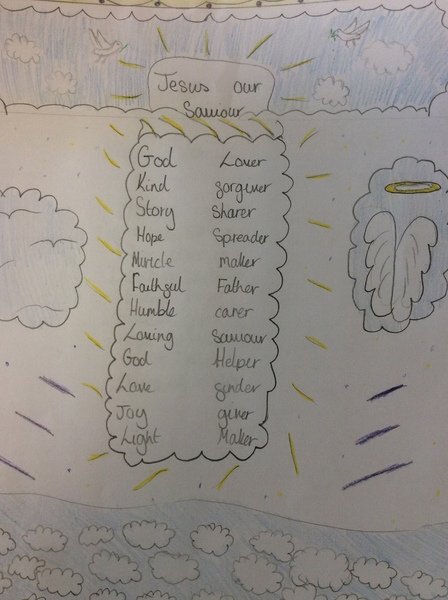 Jesus our
Saviour
God Lover
Kind forgiver
Story Sharer
Hope Spreader
Miricle maker
Faithful Father
Humble carer
Loving Saviour
God Helper
Love finder
Joy giver
Light Maker